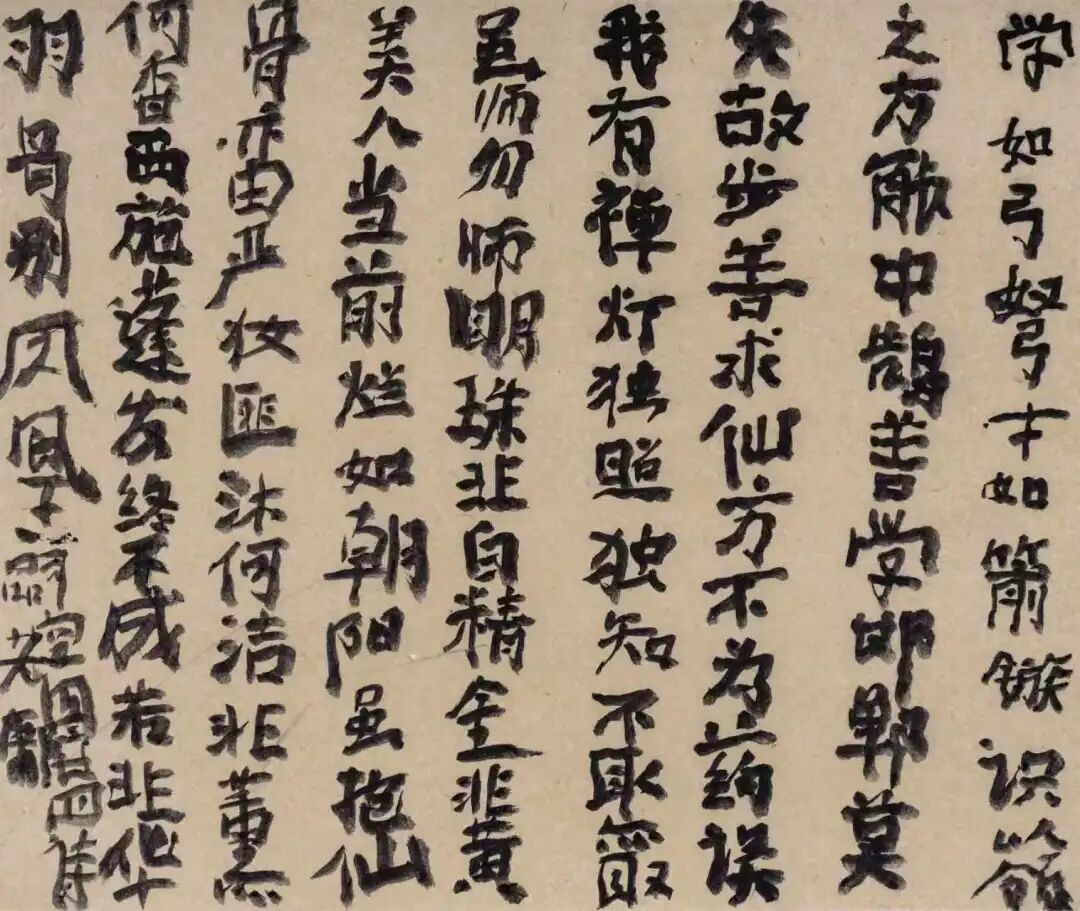 学如弓弩才如箭镞识
之方能中鹄善学邯郸莫
失故步善求仙方不为药误
我有禅灯独照独知不取
虽师勿师明珠非白精金非黄
美人当前烂如朝阳虽抱仙
骨亦由严妆匪沐何洁非薰
何香西施蓬发终不成若非华
羽曷别凤凰